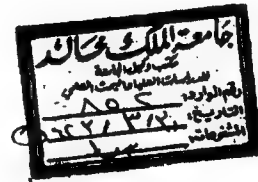 جامعة الملك خالد
مكتب وكيل الجامعة
للدراسات العليا والبحث العلمي
رقم الوارد: ٨٥٢
التاريخ:
المشفوعات: